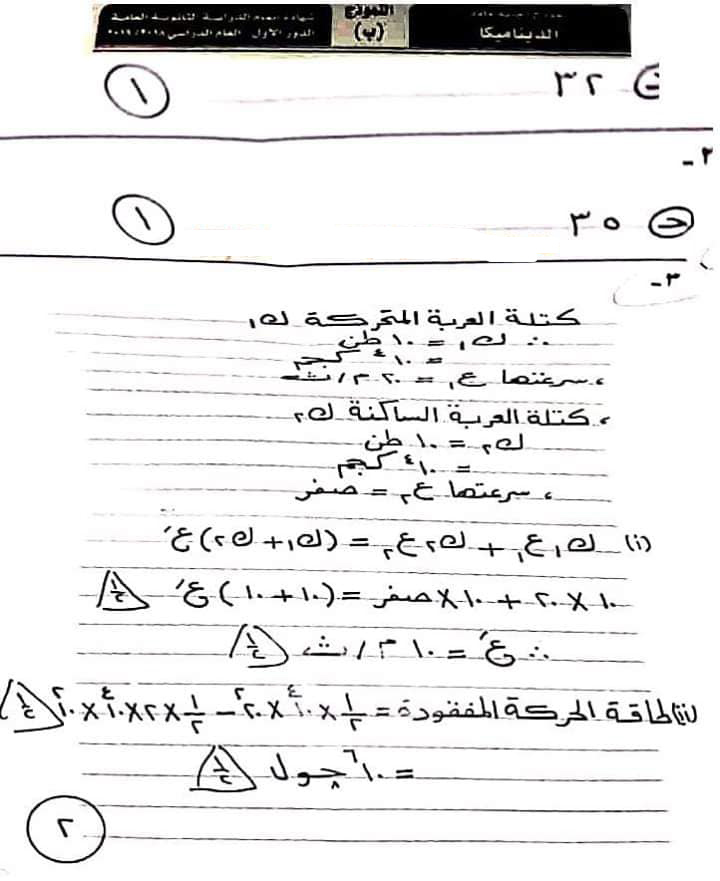 شهادة إتمام الدراسة الثانوية العامة
الدور الأول العام الدراسي ٢٠١٨/٢٠١٩
النموذج
(ب)
الديناميكا
ج ٣٢
١
٢-
د ٣٥
١
٣-
كتلة العربة المتحركة ك١
∴ ك١ = ١٠ طن
= ١٠^٤ كجم
، سرعتها ع١ = ٢٠ م/ث
، كتلة العربة الساكنة ك٢
ك٢ = ١٠ طن
= ١٠^٤ كجم
، سرعتها ع٢ = صفر
(i) ك١ ع١ + ك٢ ع٢ = (ك١ + ك٢) ع′
١٠ × ٢٠ + ١٠ × صفر = (١٠ + ١٠) ع′ ١/٢
∴ ع′ = ١٠ م/ث ١/٢
(ii) طاقة الحركة المفقودة = ١/٢ × ١٠^٤ × ٢٠^٢ − ١/٢ × ٢ × ١٠^٤ × ١٠^٢ ١/٢
= ١٠^٦ جول ١/٢
٢